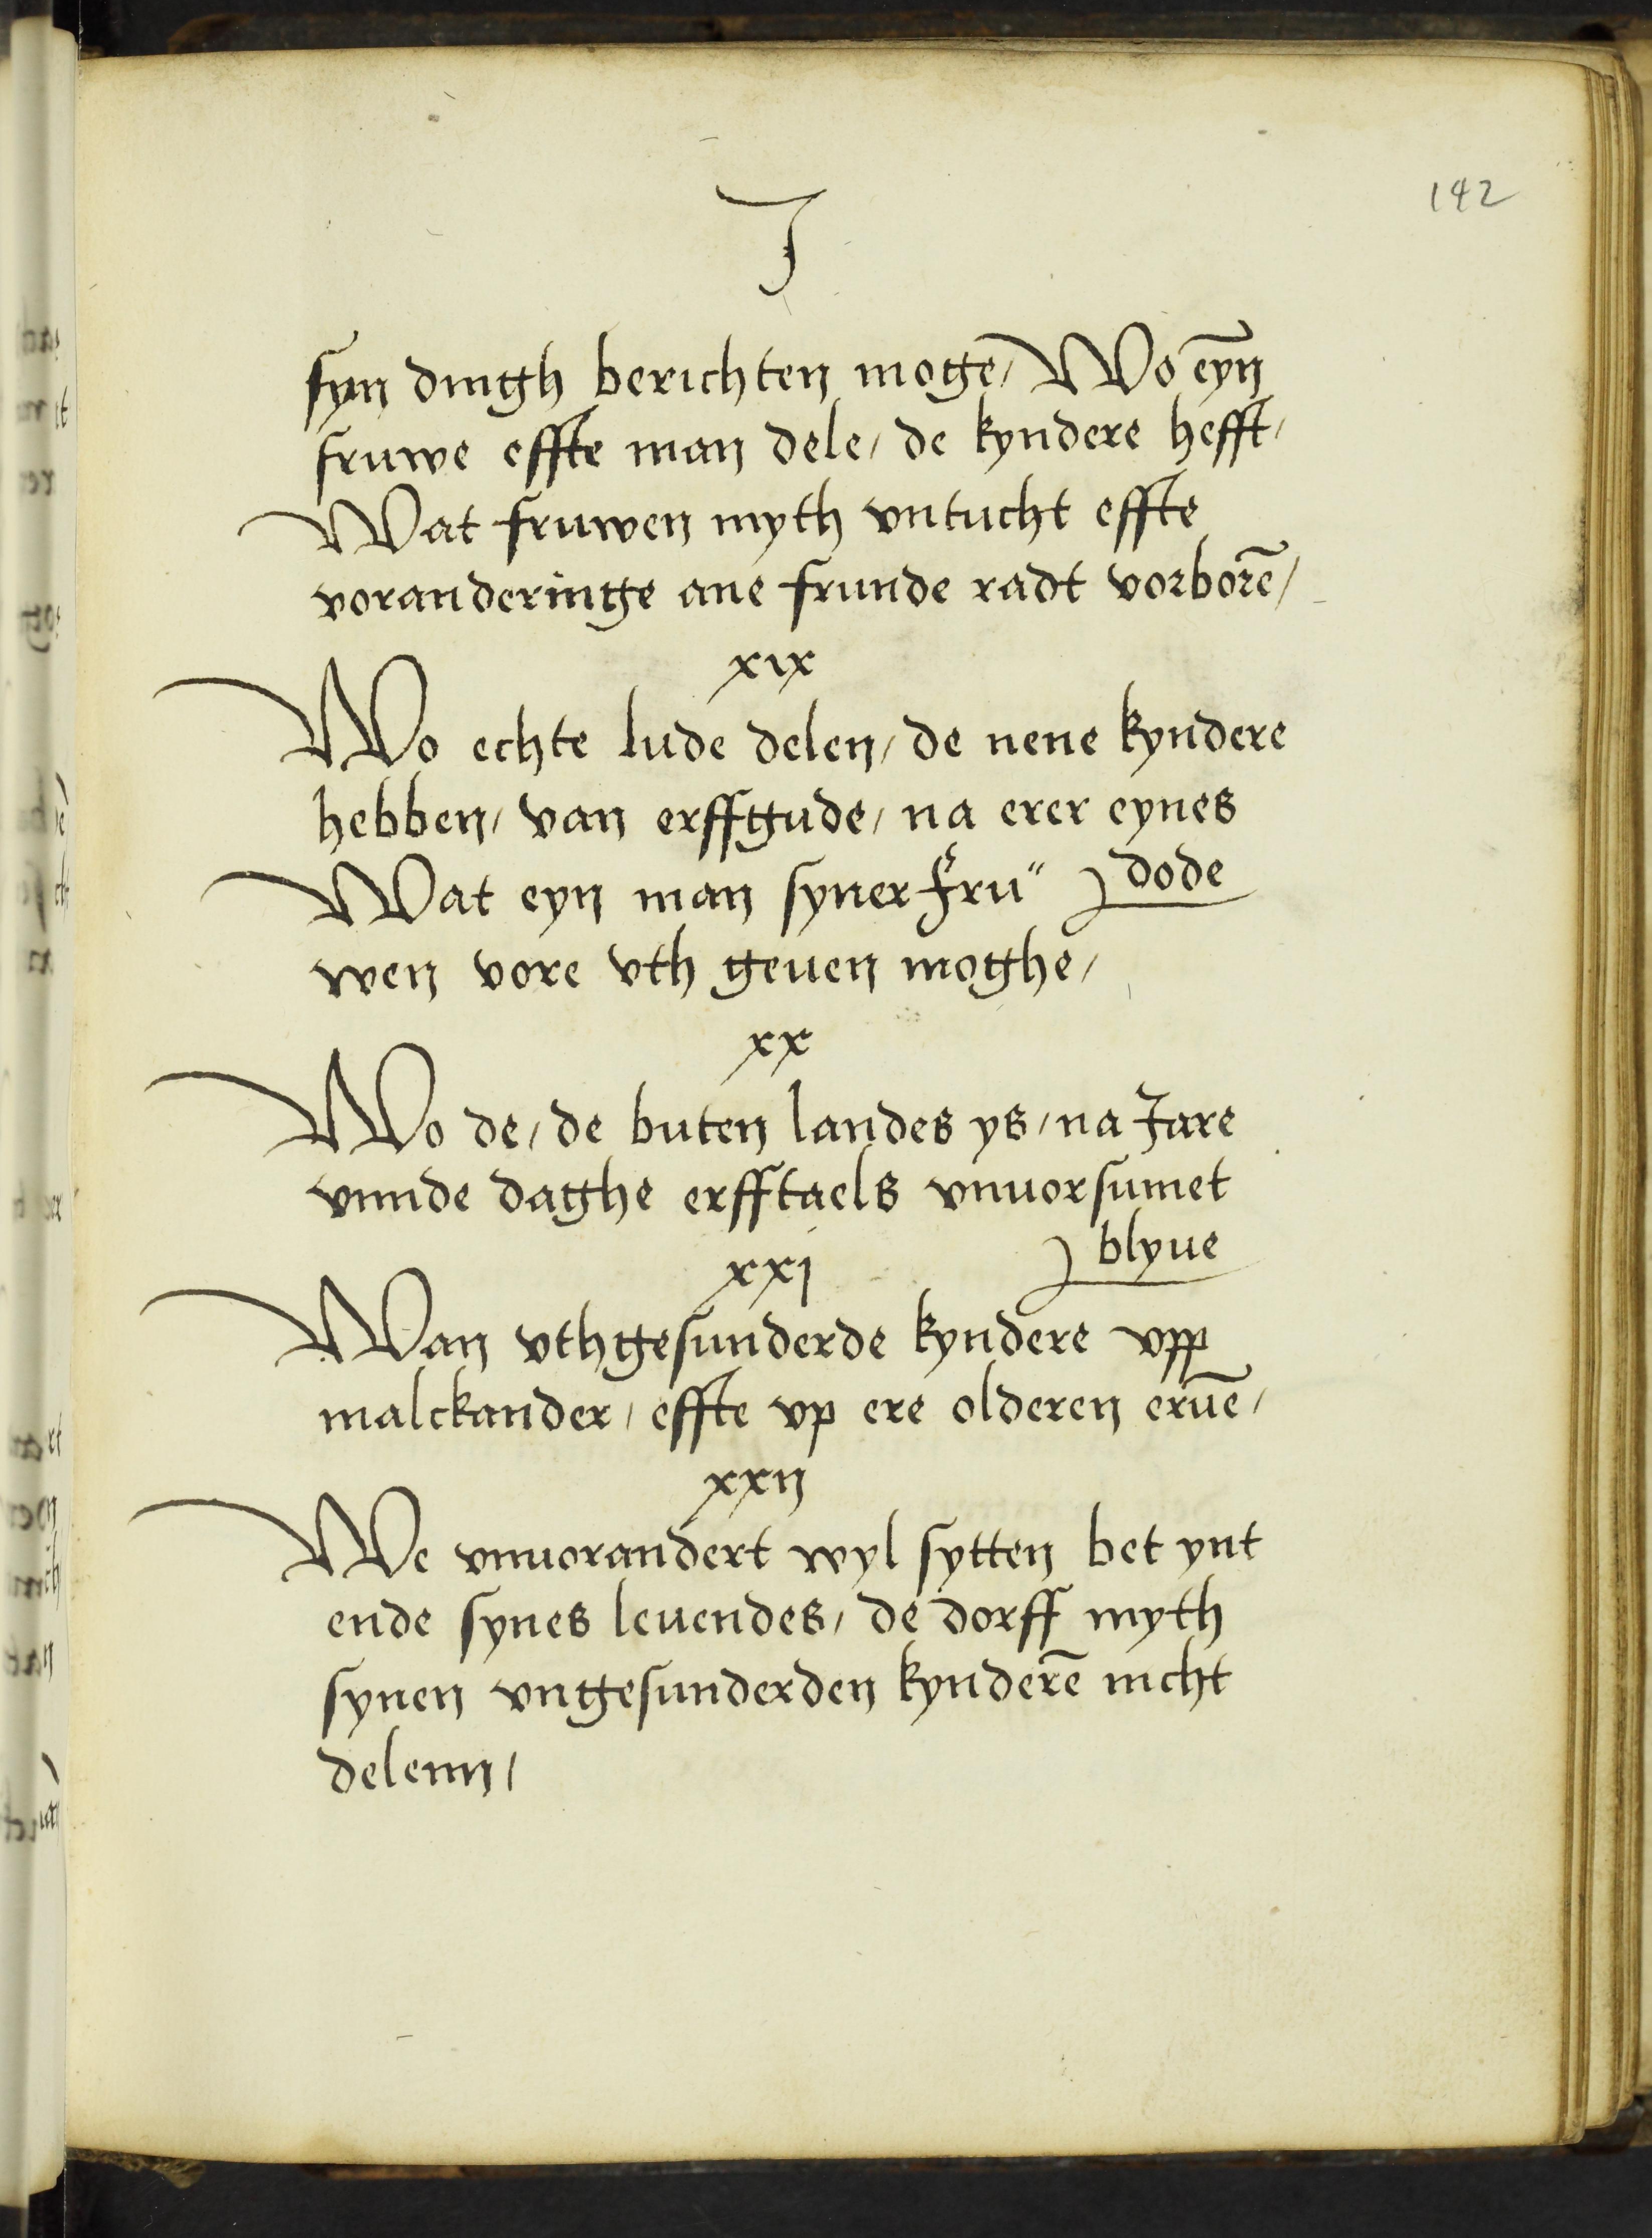 142
J
syn dingh berichten mogē / Wo eȳn
fruwe effte man dele / de kyndere hefft /
Wat fruwen myth vntucht effte
voranderinge ane frunde radt vorborē /
xix
Wo echte lude delen / de nene kyndere
hebben / van erffgude / na erer eynes
dode
Wat eyn man syner Fru"
wen vore vth geuen moghe /
xx
Wo de / de buten landes ys / na Jare
vnnde daghe erfftaels vnuorsumet
blyue
xxj
Wan vthgesunderde kyndere vpp
malckander / effte vp ere olderen eruē /
xxij
We vnuorandert wyl sytten bet ynt
ende synes leuendes / de dorff myth
synen vngesunderden kynderē nicht
delenn /